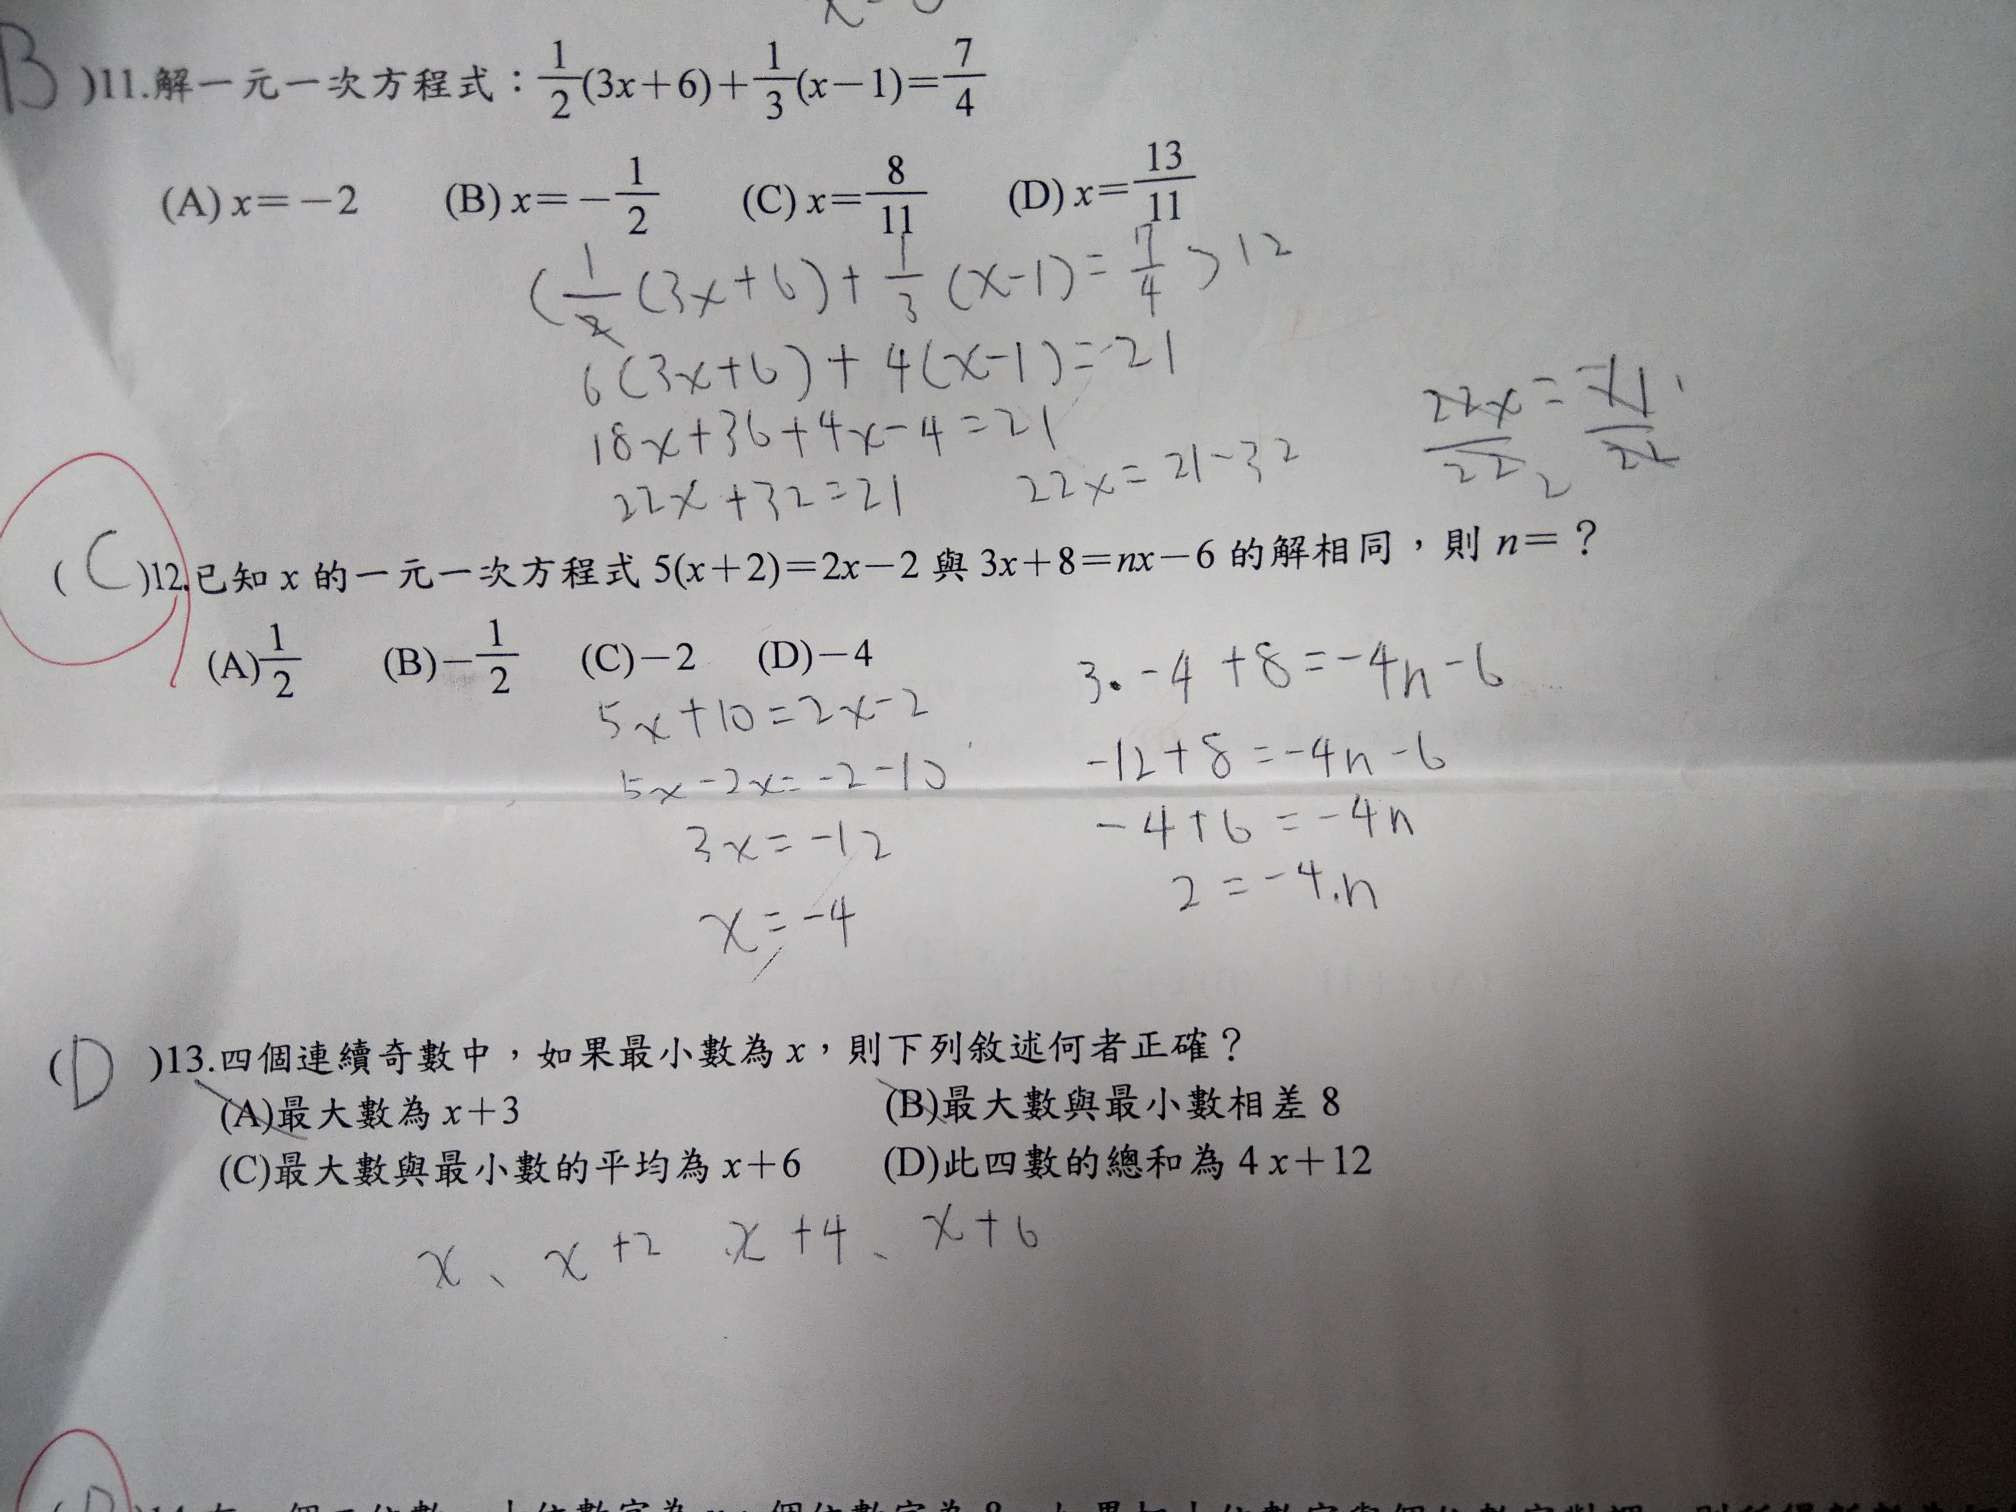 B )11.解一元一次方程式：1/2(3x+6)+1/3(x−1)=7/4
(A) x=−2 (B) x=−1/2 (C) x=8/11 (D) x=13/11
(1/2(3x+6)+1/3(x-1)=7/4)12
6(3x+6)+4(x-1)=21
18x+36+4x-4=21
22x+32=21 22x=21-32
22x/22 = -11/22
2
( C )12.已知 x 的一元一次方程式 5(x+2)=2x−2 與 3x+8=nx−6 的解相同，則 n=？
(A)1/2 (B)−1/2 (C)−2 (D)−4
5x+10=2x-2
5x-2x=-2-10
3x=-12
x=-4
3·-4+8=-4n-6
-12+8=-4n-6
-4+6=-4n
2=-4.n
( D )13.四個連續奇數中，如果最小數為 x，則下列敘述何者正確？
(A)最大數為 x+3 (B)最大數與最小數相差 8
(C)最大數與最小數的平均為 x+6 (D)此四數的總和為 4x+12
x、x+2 x+4、x+6